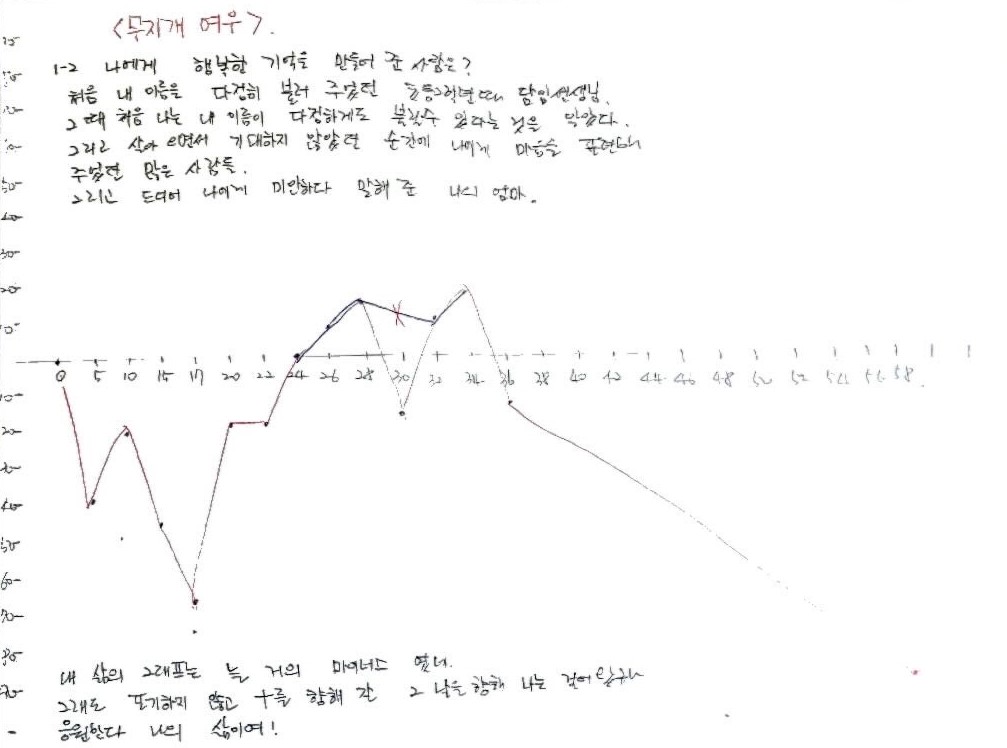 <무지개 여우>.
1-2 나에게 행복한 기억을 만들어 준 사람은?
처음 내 이름을 다정히 불러 주었던 초등2학년때 담임선생님.
그때 처음 나는 내 이름이 다정하게도 불릴수 있다는 것을 알았다.
그리고 살아오면서 기대하지 않았던 순간에 나에게 마음을 표현해
주었던 많은 사람들.
그리고 드디어 나에게 미안하다 말해 준 나의 엄마.
50
40
30
20
10
0 5 10 15 17 20 22 24 26 28 30 32 34 36 38 40 42 44 46 48 50 52 54 56 58
10
20
30
40
50
60
70
80
내 삶의 그래프는 늘 거의 마이너스 였네.
그래도 포기하지 않고 +를 향해 간 그 날을 향해 나는
응원한다 나의 삶이여!